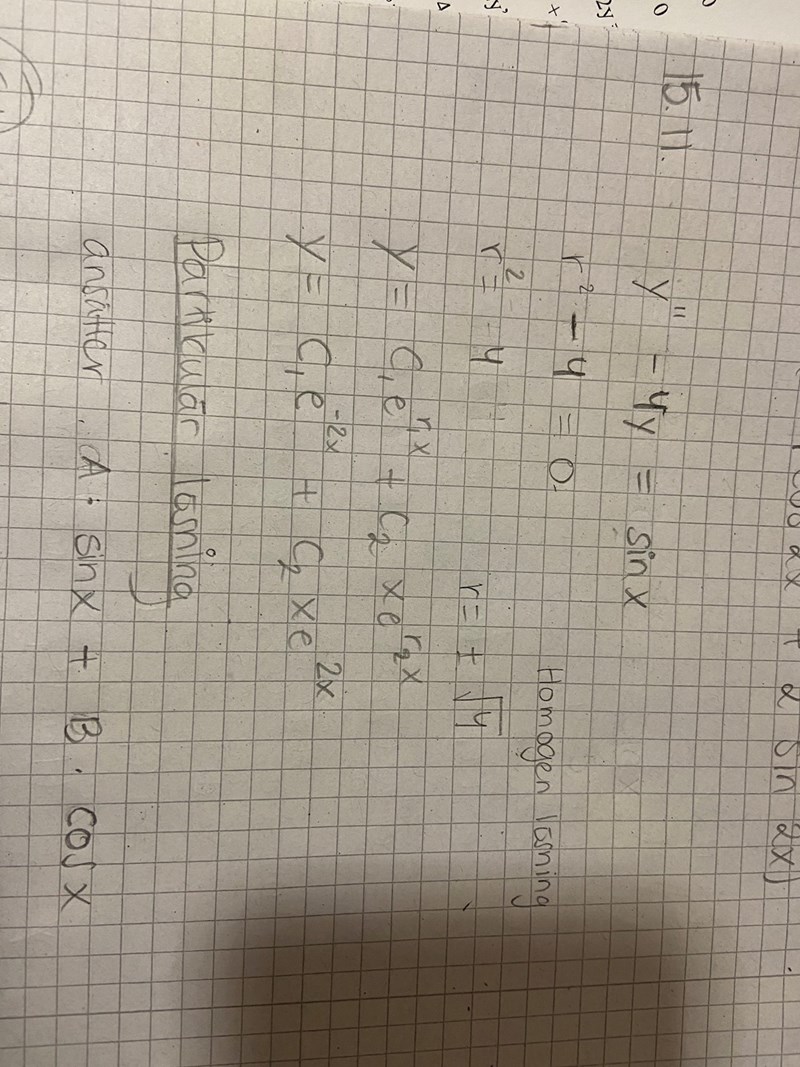 cos 2x + 2 sin 2x)
15.11.
y'' - 4y = sin x
r² - 4 = 0.
Homogen lösning
r² = -4
r = ± √4
y = C₁e^r₁x + C₂ xe^r₂x
y = C₁e^-2x + C₂ xe^2x
Partikulär lösning
ansätter. A · sinx + B · cosx